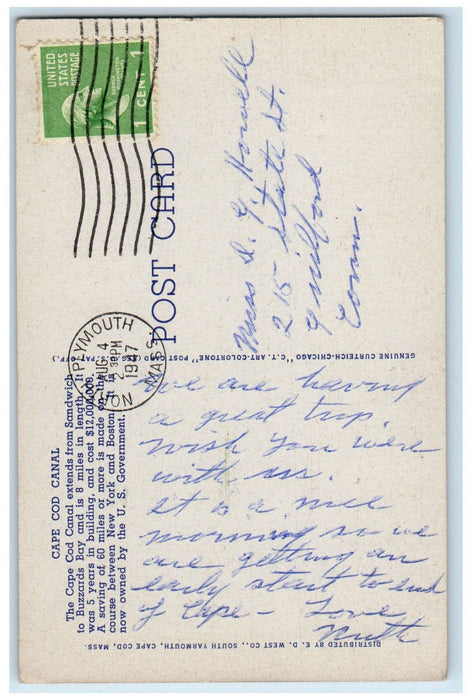 CAPE COD CANAL
The Cape Cod Canal extends from Sandwich
to Buzzards Bay and is 8 miles in length. It
was 5 years in building, and cost $12,000,000.
A saving of 60 miles or more is made on the
course between New York and Boston. It is
now owned by the U. S. Government.
We are having
a great trip.
Wish you were
with us.
It is a nice
morning so we
are getting an
early start to end
of Cape — Love
Ruth
DISTRIBUTED BY E. D. WEST CO., SOUTH YARMOUTH, CAPE COD, MASS.
GENUINE CURTEICH-CHICAGO "C.T. ART-COLORTONE" POST CARD (REG. U.S. PAT. OFF.)
POST CARD
UNITED
STATES
POSTAGE
1 CENT 1
NO. PLYMOUTH
AUG 4
2 30 PM
1947
MASS.
Miss D. G. Howell
215 State St.
Guilford
Conn.